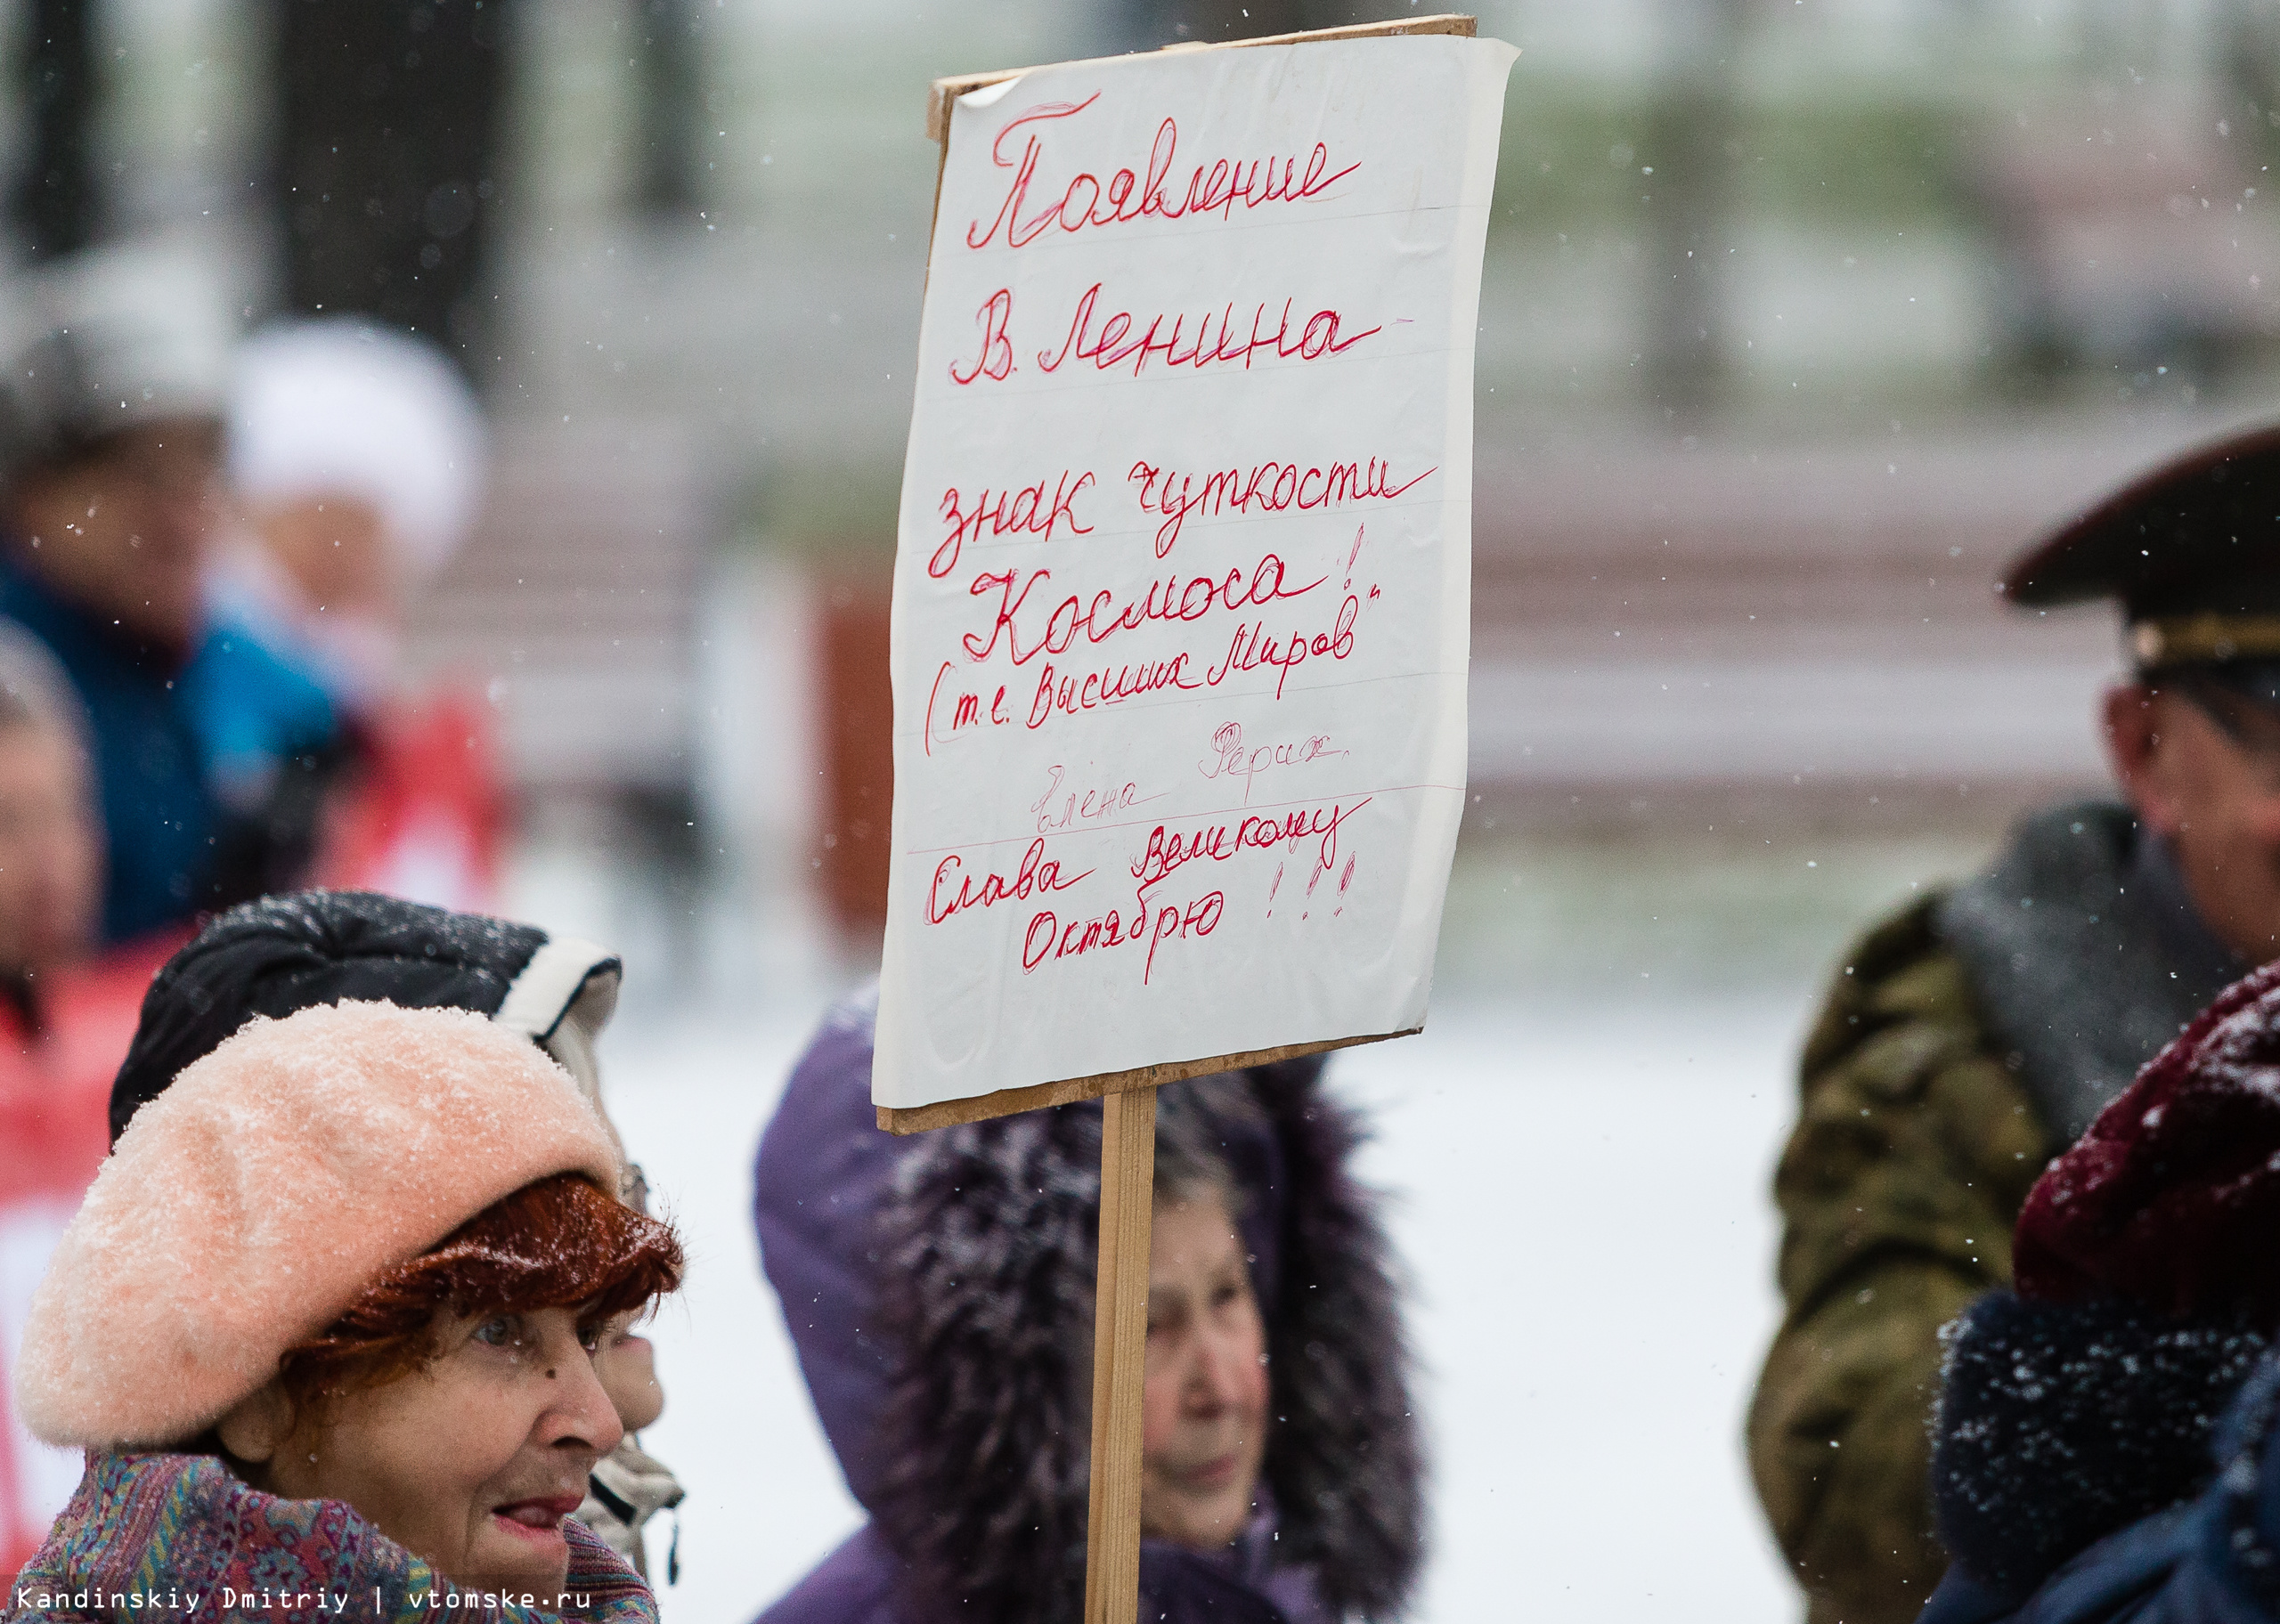 Появление
В. Ленина
знак чуткости
Космоса!
(т.е. Высших Миров"
Елена Рерих.
Слава Великому
Октябрю !!!
Kandinskiy Dmitriy | vtomske.ru